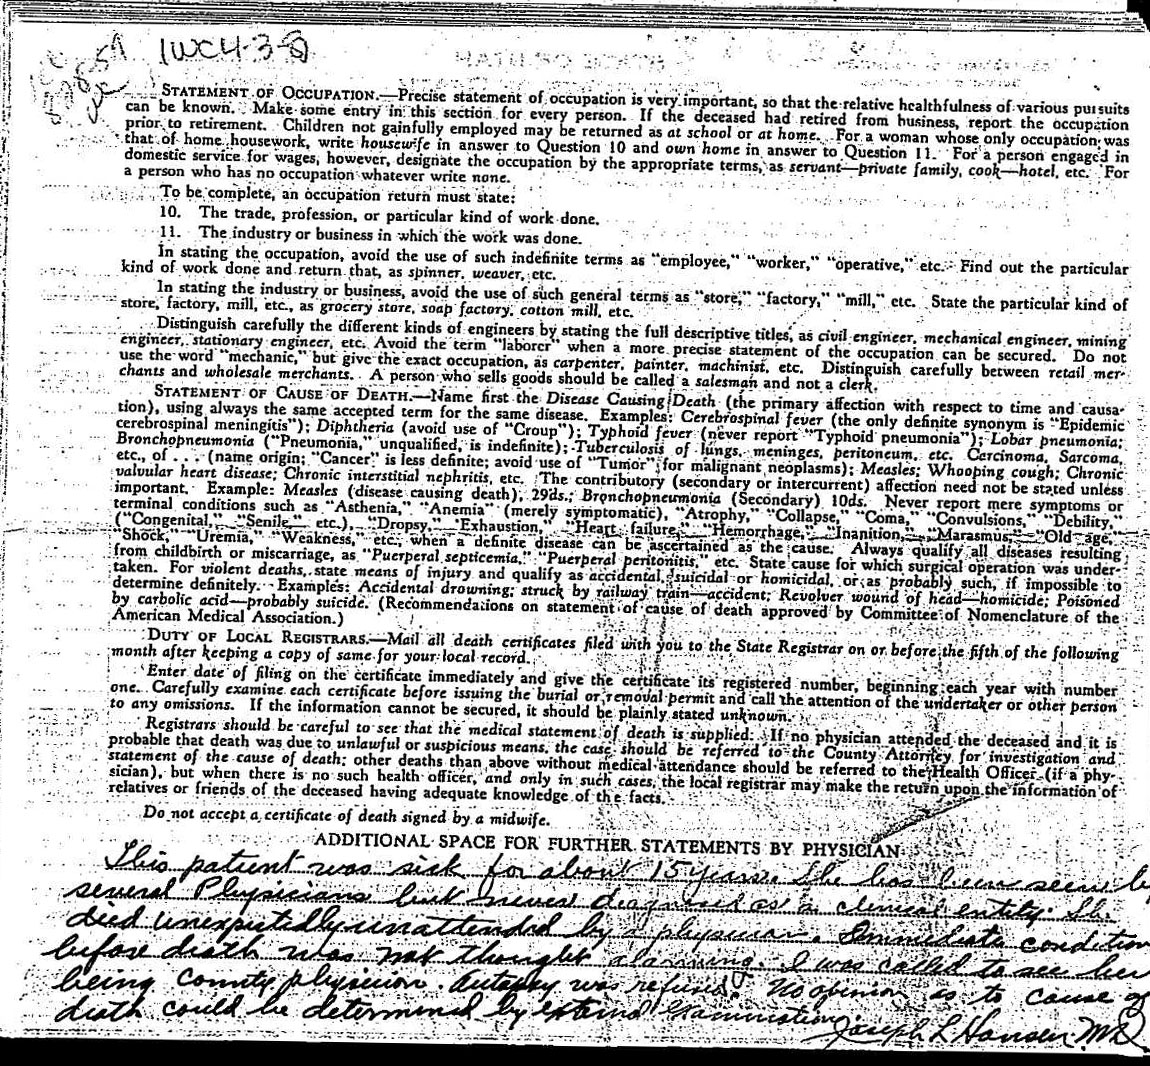 1WC4-3-8
STATEMENT OF OCCUPATION.—Precise statement of occupation is very important, so that the relative healthfulness of various pursuits
can be known. Make some entry in this section for every person. If the deceased had retired from business, report the occupation
prior to retirement. Children not gainfully employed may be returned as at school or at home. For a woman whose only occupation was
that of home housework, write housewife in answer to Question 10 and own home in answer to Question 11. For a person engaged in
domestic service for wages, however, designate the occupation by the appropriate terms, as servant—private family, cook—hotel, etc. For
a person who has no occupation whatever write none.
To be complete, an occupation return must state:
10. The trade, profession, or particular kind of work done.
11. The industry or business in which the work was done.
In stating the occupation, avoid the use of such indefinite terms as "employee," "worker," "operative," etc. Find out the particular
kind of work done and return that, as spinner, weaver, etc.
In stating the industry or business, avoid the use of such general terms as "store," "factory," "mill," etc. State the particular kind of
store, factory, mill, etc., as grocery store, soap factory, cotton mill, etc.
Distinguish carefully the different kinds of engineers by stating the full descriptive titles, as civil engineer, mechanical engineer, mining
engineer, stationary engineer, etc. Avoid the term "laborer" when a more precise statement of the occupation can be secured. Do not
use the word "mechanic," but give the exact occupation, as carpenter, painter, machinist, etc. Distinguish carefully between retail mer-
chants and wholesale merchants. A person who sells goods should be called a salesman and not a clerk.
STATEMENT OF CAUSE OF DEATH.—Name first the Disease Causing Death (the primary affection with respect to time and causa-
tion), using always the same accepted term for the same disease. Examples: Cerebrospinal fever (the only definite synonym is "Epidemic
cerebrospinal meningitis"); Diphtheria (avoid use of "Croup"); Typhoid fever (never report "Typhoid pneumonia"); Lobar pneumonia;
Bronchopneumonia ("Pneumonia," unqualified, is indefinite); Tuberculosis of lungs, meninges, peritoneum, etc. Carcinoma, Sarcoma,
etc., of . . . (name origin; "Cancer" is less definite; avoid use of "Tumor" for malignant neoplasms); Measles; Whooping cough; Chronic
valvular heart disease; Chronic interstitial nephritis, etc. The contributory (secondary or intercurrent) affection need not be stated unless
important. Example: Measles (disease causing death), 29ds.; Bronchopneumonia (Secondary) 10ds. Never report mere symptoms or
terminal conditions such as "Asthenia," "Anemia" (merely symptomatic), "Atrophy," "Collapse," "Coma," "Convulsions," "Debility,"
("Congenital," "Senile," etc.), "Dropsy," "Exhaustion," "Heart failure," "Hemorrhage," "Inanition," "Marasmus," "Old age,"
"Shock," "Uremia," "Weakness," etc., when a definite disease can be ascertained as the cause. Always qualify all diseases resulting
from childbirth or miscarriage, as "Puerperal septicemia," "Puerperal peritonitis," etc. State cause for which surgical operation was under-
taken. For violent deaths, state means of injury and qualify as accidental, suicidal or homicidal, or as probably such, if impossible to
determine definitely. Examples: Accidental drowning; struck by railway train—accident; Revolver wound of head—homicide; Poisoned
by carbolic acid—probably suicide. (Recommendations on statement of cause of death approved by Committee of Nomenclature of the
American Medical Association.)
DUTY OF LOCAL REGISTRARS.—Mail all death certificates filed with you to the State Registrar on or before the fifth of the following
month after keeping a copy of same for your local record.
Enter date of filing on the certificate immediately and give the certificate its registered number, beginning each year with number
one. Carefully examine each certificate before issuing the burial or removal permit and call the attention of the undertaker or other person
to any omissions. If the information cannot be secured, it should be plainly stated unknown.
Registrars should be careful to see that the medical statement of death is supplied. If no physician attended the deceased and it is
probable that death was due to unlawful or suspicious means, the case should be referred to the County Attorney for investigation and
statement of the cause of death; other deaths than above without medical attendance should be referred to the Health Officer (if a phy-
sician), but when there is no such health officer, and only in such cases, the local registrar may make the return upon the information of
relatives or friends of the deceased having adequate knowledge of the facts.
Do not accept a certificate of death signed by a midwife.
ADDITIONAL SPACE FOR FURTHER STATEMENTS BY PHYSICIAN
This patient was sick for about 15 years. She has been seen by
several Physicians but never diagnosed as a clinical entity. She
died unexpectedly unattended by a physician. Immediate condition
before death was not thought alarming. I was called to see her
being county physician. Autopsy was refused. No opinion as to cause of
death could be determined by external examination.
Joseph L Hansen M.D.